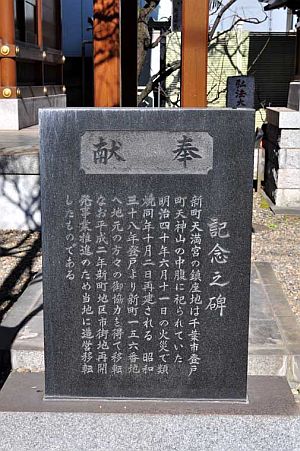 奉献
記念之碑
新町天満宮の鎮座地は千葉市登戸
町天神山の中腹に祀られていた
明治四十年六月十一日の火災で類
焼同年十月二日再建される 昭和
三十八年登戸より新町一五六番地
へ地元の方々の御協力を得て移転
なお平成二年新町地区市街地再開
発事業推進のため当地に造営移転
したものである
弘法大